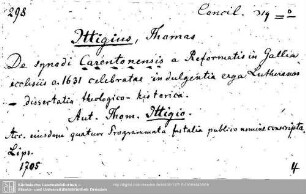 298 Concil. 214 = o
Ittigius, Thomas
De synodi Carentonensis a Reformatis in Gallia
ecclesiis a. 1631 celebratae indulgentia erga Lutheranos
– dissertatio theologico-historica.
Aut. Thom. Ittigio.
Acc. eiusdem quatuor Programmata festalia publico nomine conscripta.
Lips.
1705 4.